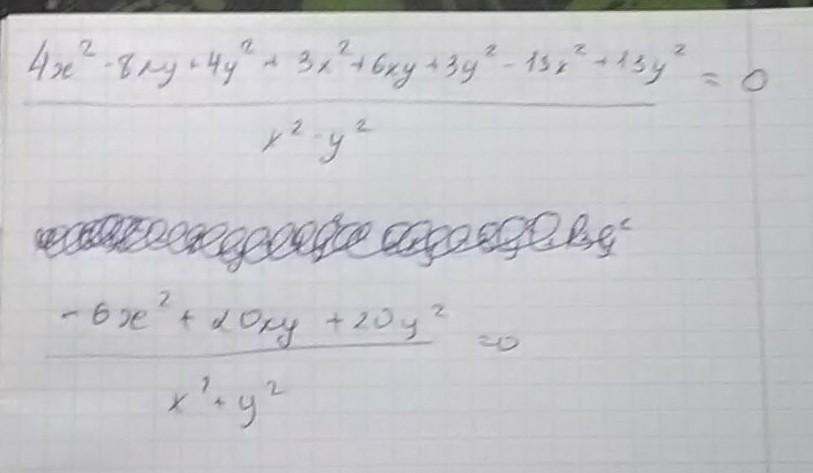 4x² - 8xy + 4y² + 3x² + 6xy + 3y² - 13x² + 13y² = 0
x² - y²
-6x² + 20xy + 20y² = 0
x² + y²